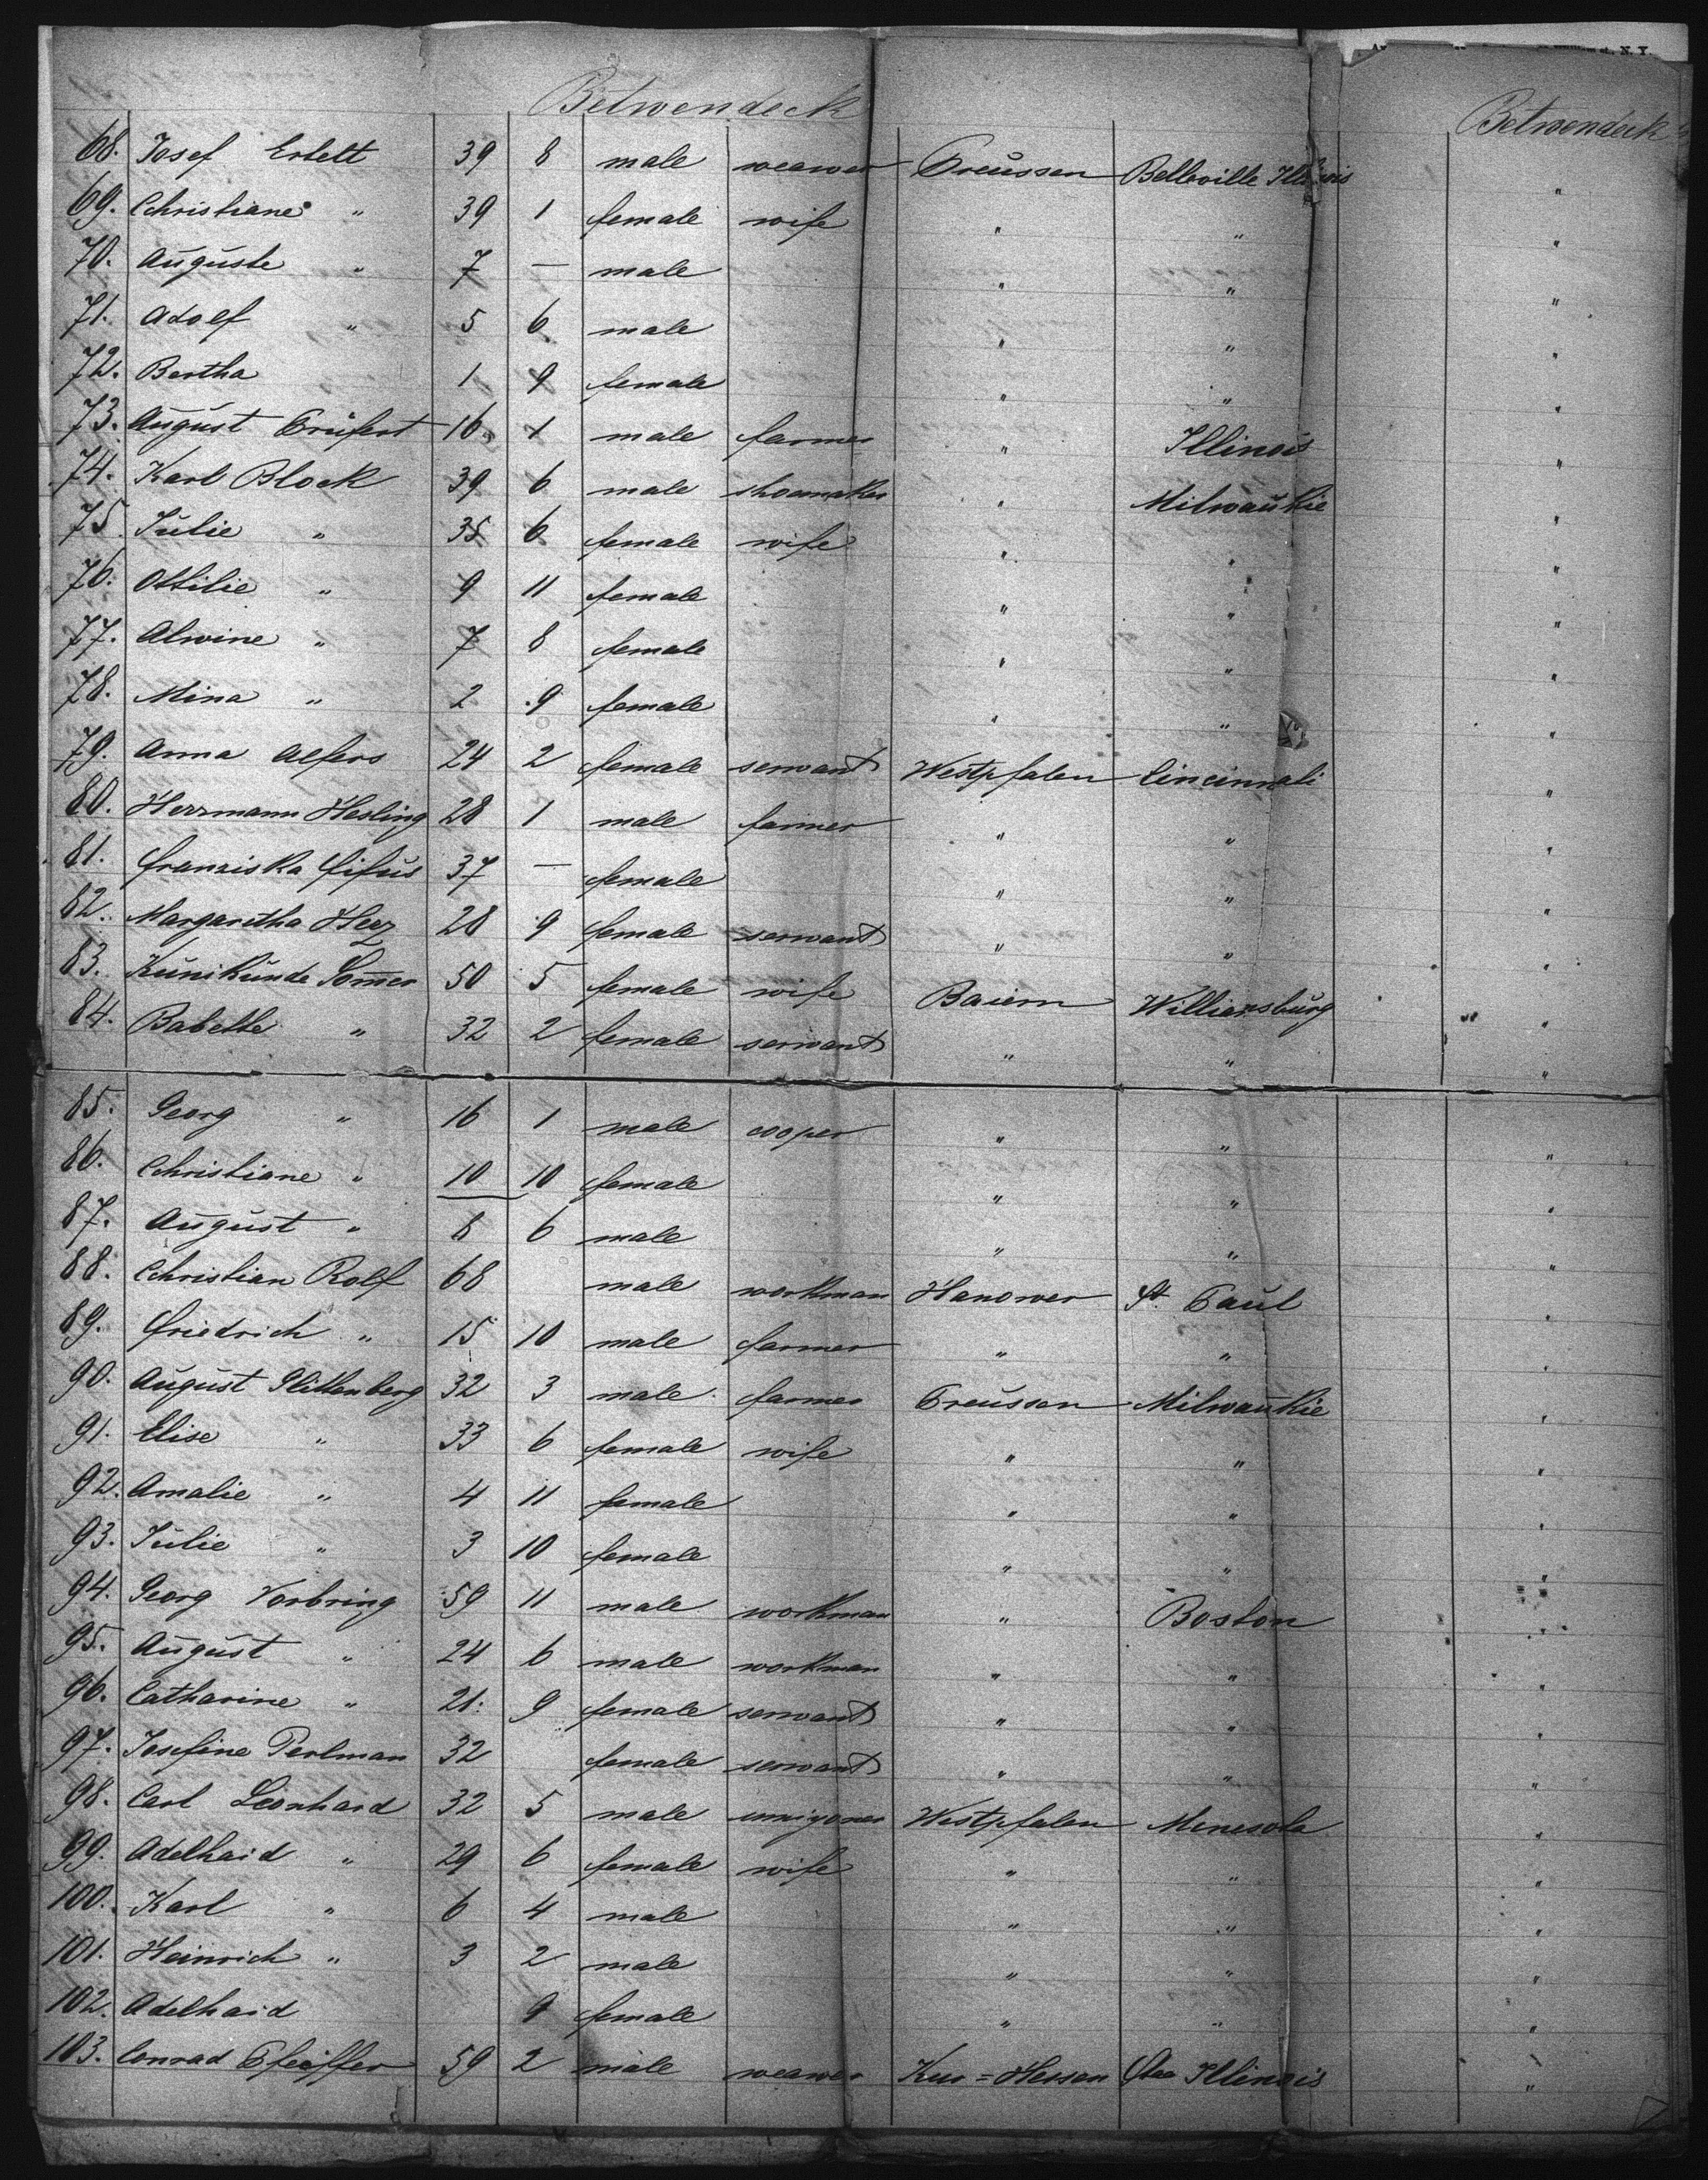 Betwendeck Betwendeck
68. Josef Ertelt 39 8 male weawer Preussen Belleville Illinois "
69. Christiane " 39 1 female wife " " "
70. Auguste " 7 — male " " "
71. Adolf " 5 6 male " " "
72. Bertha 1 9 female " " "
73. August Prüfert 16 1 male farmer " Illinois "
74. Karl Block 39 6 male shoemaker " Milwaukie "
75. Julie " 35 6 female wife " " "
76. Ottilie " 9 11 female " " "
77. Alwine " 7 8 female " " "
78. Mina " 2 9 female " " "
79. Anna Alfers 24 2 female servant Westpfalen Cincinnati "
80. Herrmann Hesling 28 1 male farmer " " "
81. Franziska Fifus 37 — female " " "
82. Margaretha Herz 28 9 female servant " " "
83. Kunikunde Som̄er 50 5 female wife Baiern Williamsburg "
84. Babette " 32 2 female servant " " "
85. Georg " 16 1 male cooper " " "
86. Christiane " 10 10 female " " "
87. August " 8 6 male " " "
88. Christian Rolf 68 male workman Hanower St. Paul "
89. Friedrich " 15 10 male farmer " " "
90. August Plittenberg 32 3 male farmer Preussen Milwaukie "
91. Elise " 33 6 female wife " " "
92. Amalie " 4 11 female " " "
93. Julie " 3 10 female " " "
94. Georg Vorbring 59 11 male workman " Boston "
95. August " 24 6 male workman " " "
96. Catharine " 21 9 female servant " " "
97. Josefine Perlman 32 female servant " " "
98. Carl Leonhard 32 5 male Westpfalen Minesota "
99. Adelhaid " 29 6 female wife " " "
100. Karl " 6 4 male " " "
101. Heinrich " 3 2 male " " "
102. Adelhaid 9 female " " "
103. Conrad Pfeiffer 59 2 male weawer Kur=Hessen Illinois "